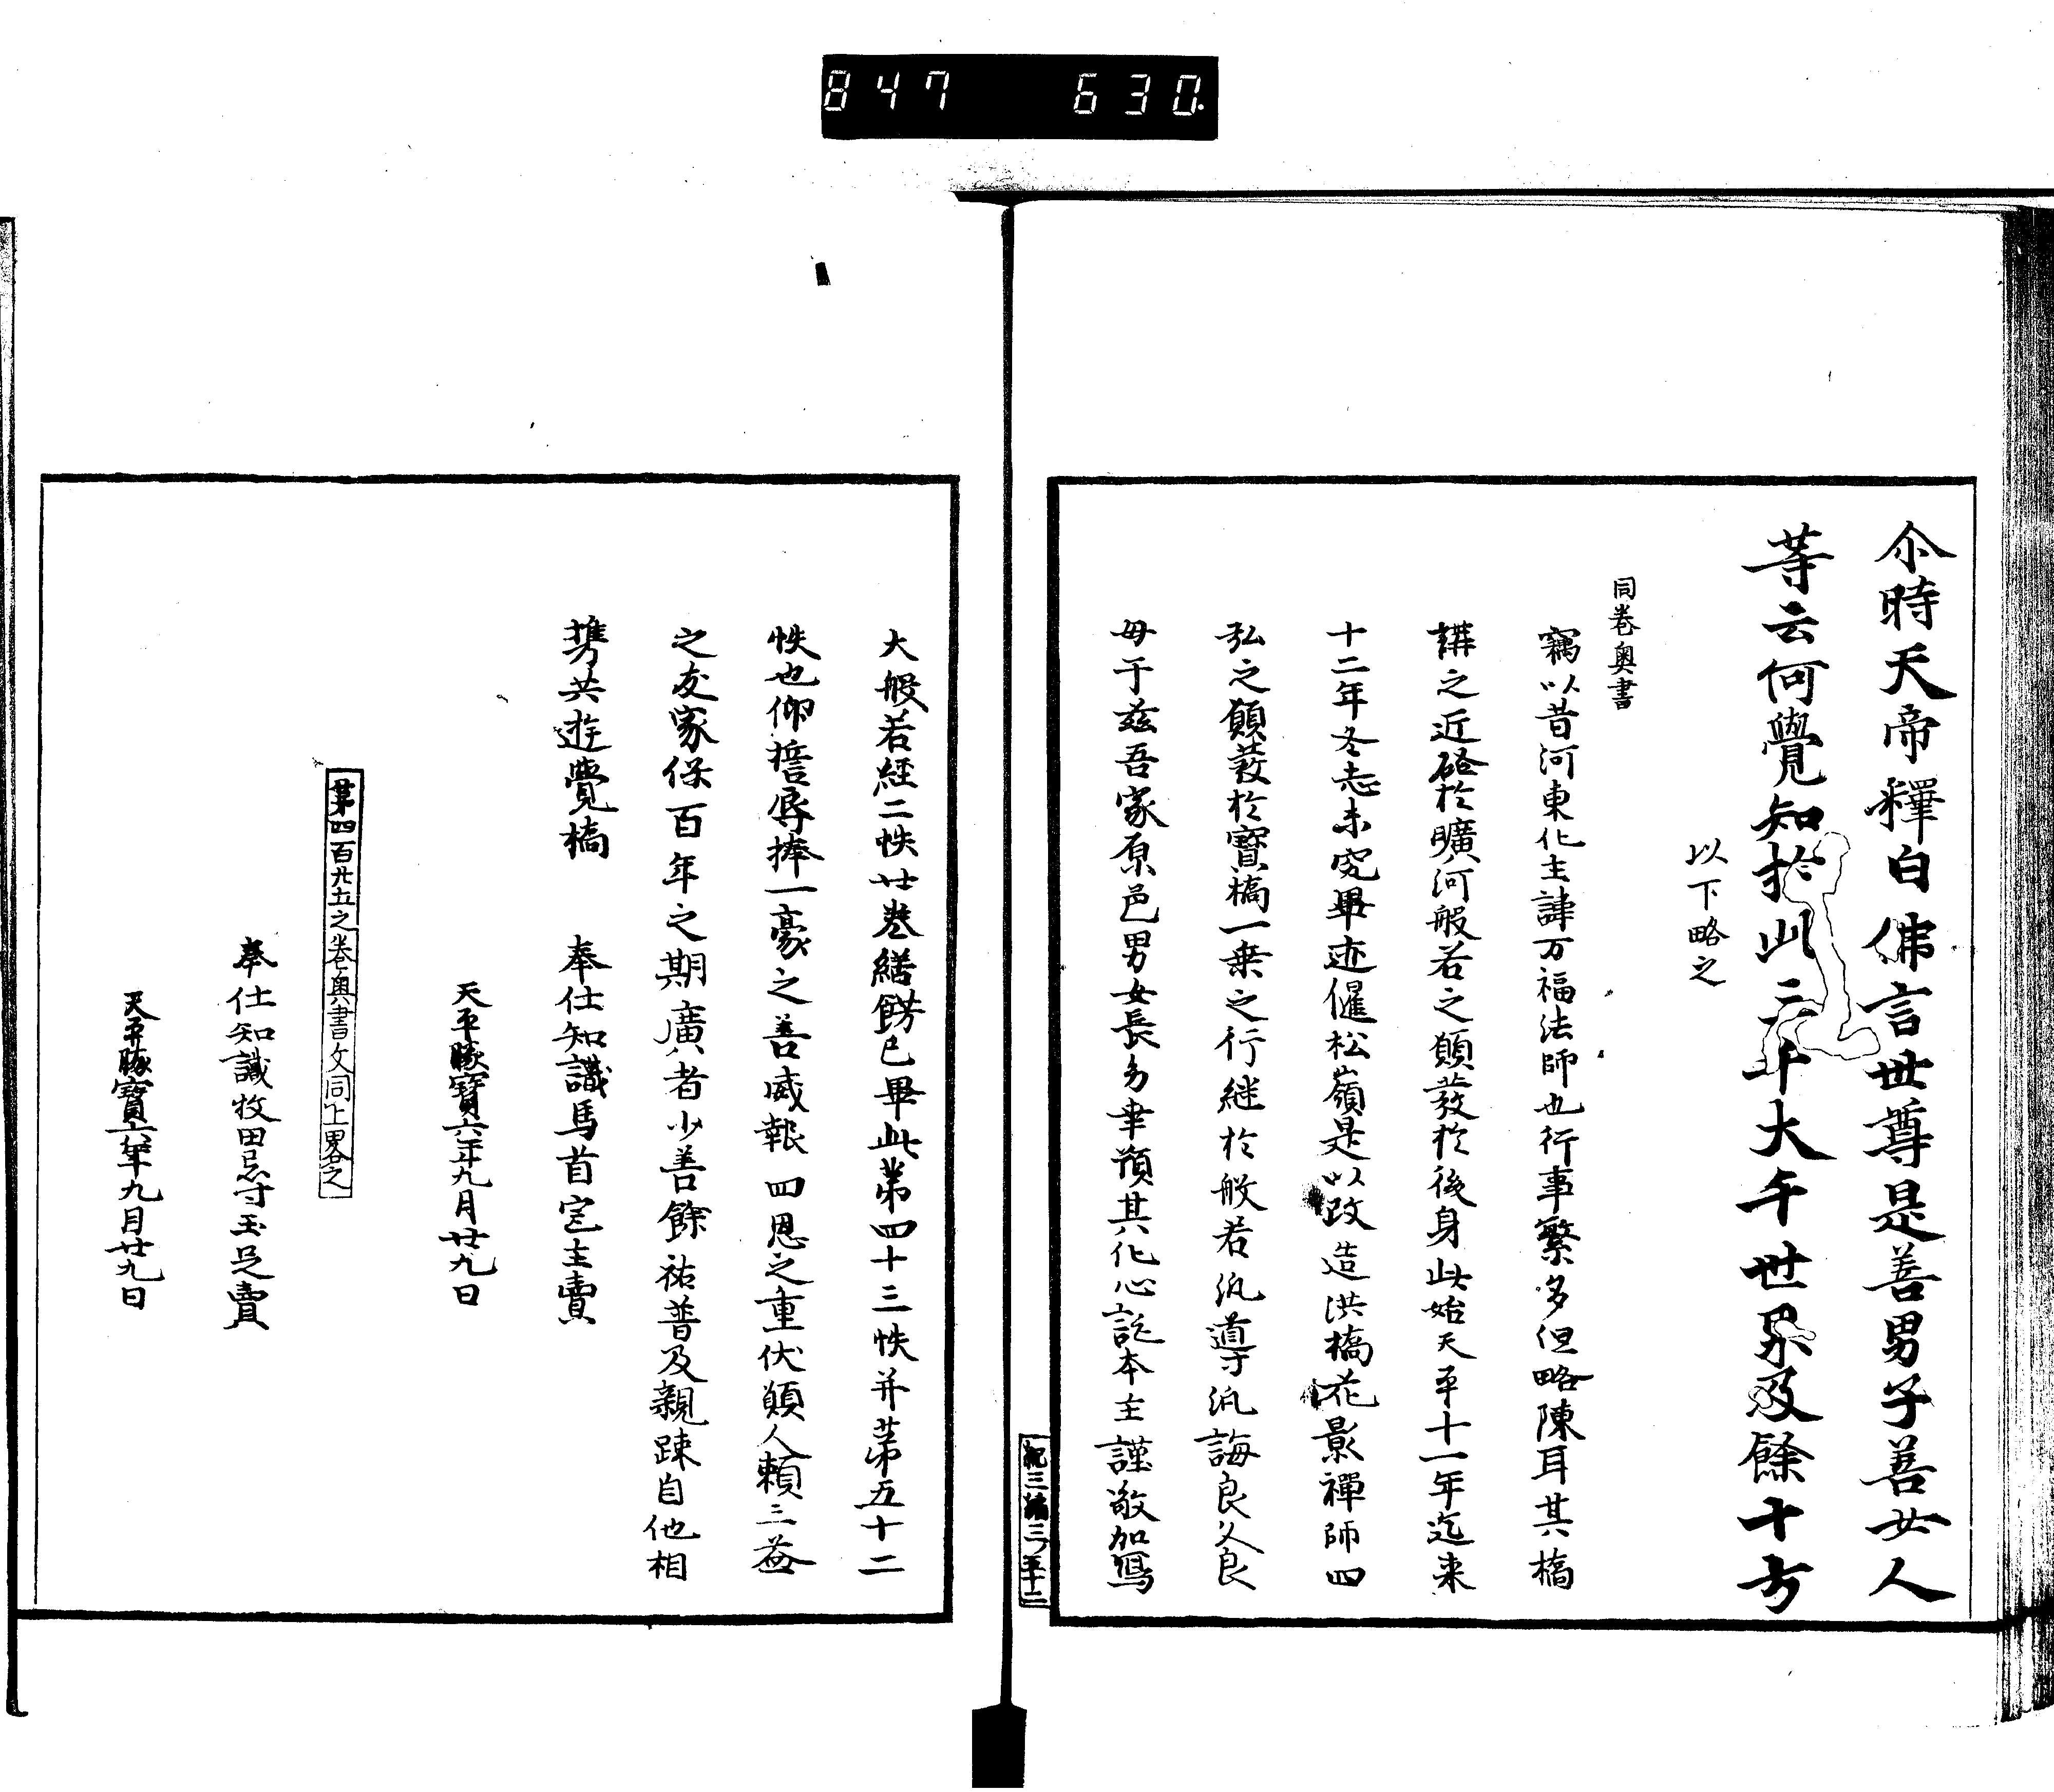 847 630
尒時天帝釋白佛言世尊是善男子善女人
等云何覺知於此三千大千世界及餘十方
以下略之
同卷奥書
竊以昔河東化主諱万福法師也行事繁多但略陳耳其橋
構之近啓於曠河般若之願發於後身此始天平十一年迄来
十二年冬志未究畢迹僊松嶺是以改造洪橋花影禪師四
弘之願發於寶橋一乗之行継於般若汎導汎誨良父良
母于茲吾家原邑男女長幼幸預其化心託本主謹敬加寫
大般若經二帙廿巻繕餝已畢此第四十三帙并第五十二
帙也仰誓辱捧一豪之善威報四恩之重伏願人頼三益
之友家保百年之期廣者少善餘祐普及親踈自他相
携共遊覺橋
奉仕知識馬首宅主賣
天平勝寶六年九月廿九日
第四百廿五之巻奥書文同上畧之
奉仕知識牧田忌寸玉足賣
天平勝寶六年九月廿九日